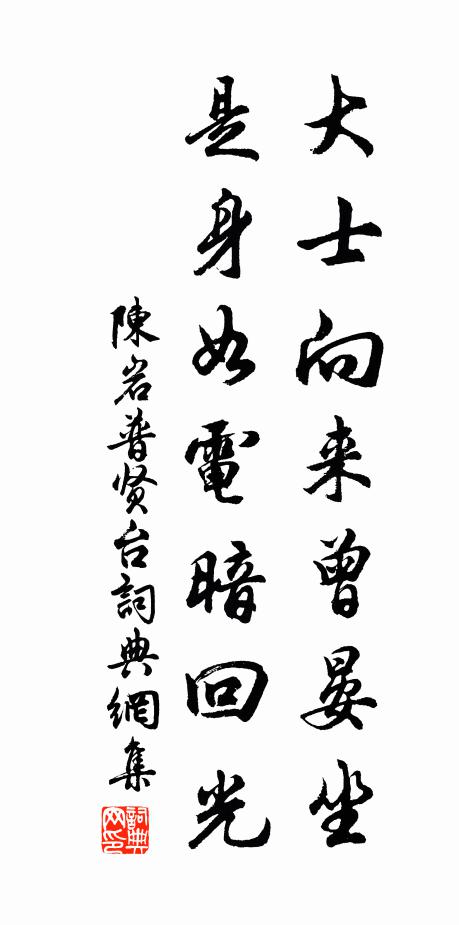 大士向来曾晏坐
是身如電暗回光
陳岩普贤台詞典網集
詞典网印